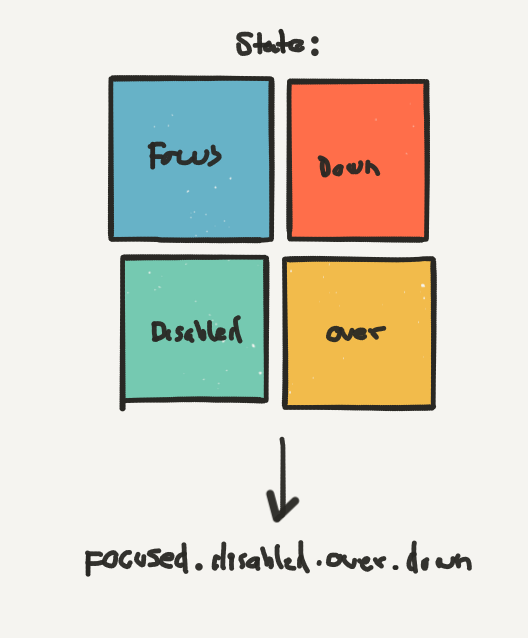 State:
Focus
Down
Disabled
over
Focused.disabled.over.down